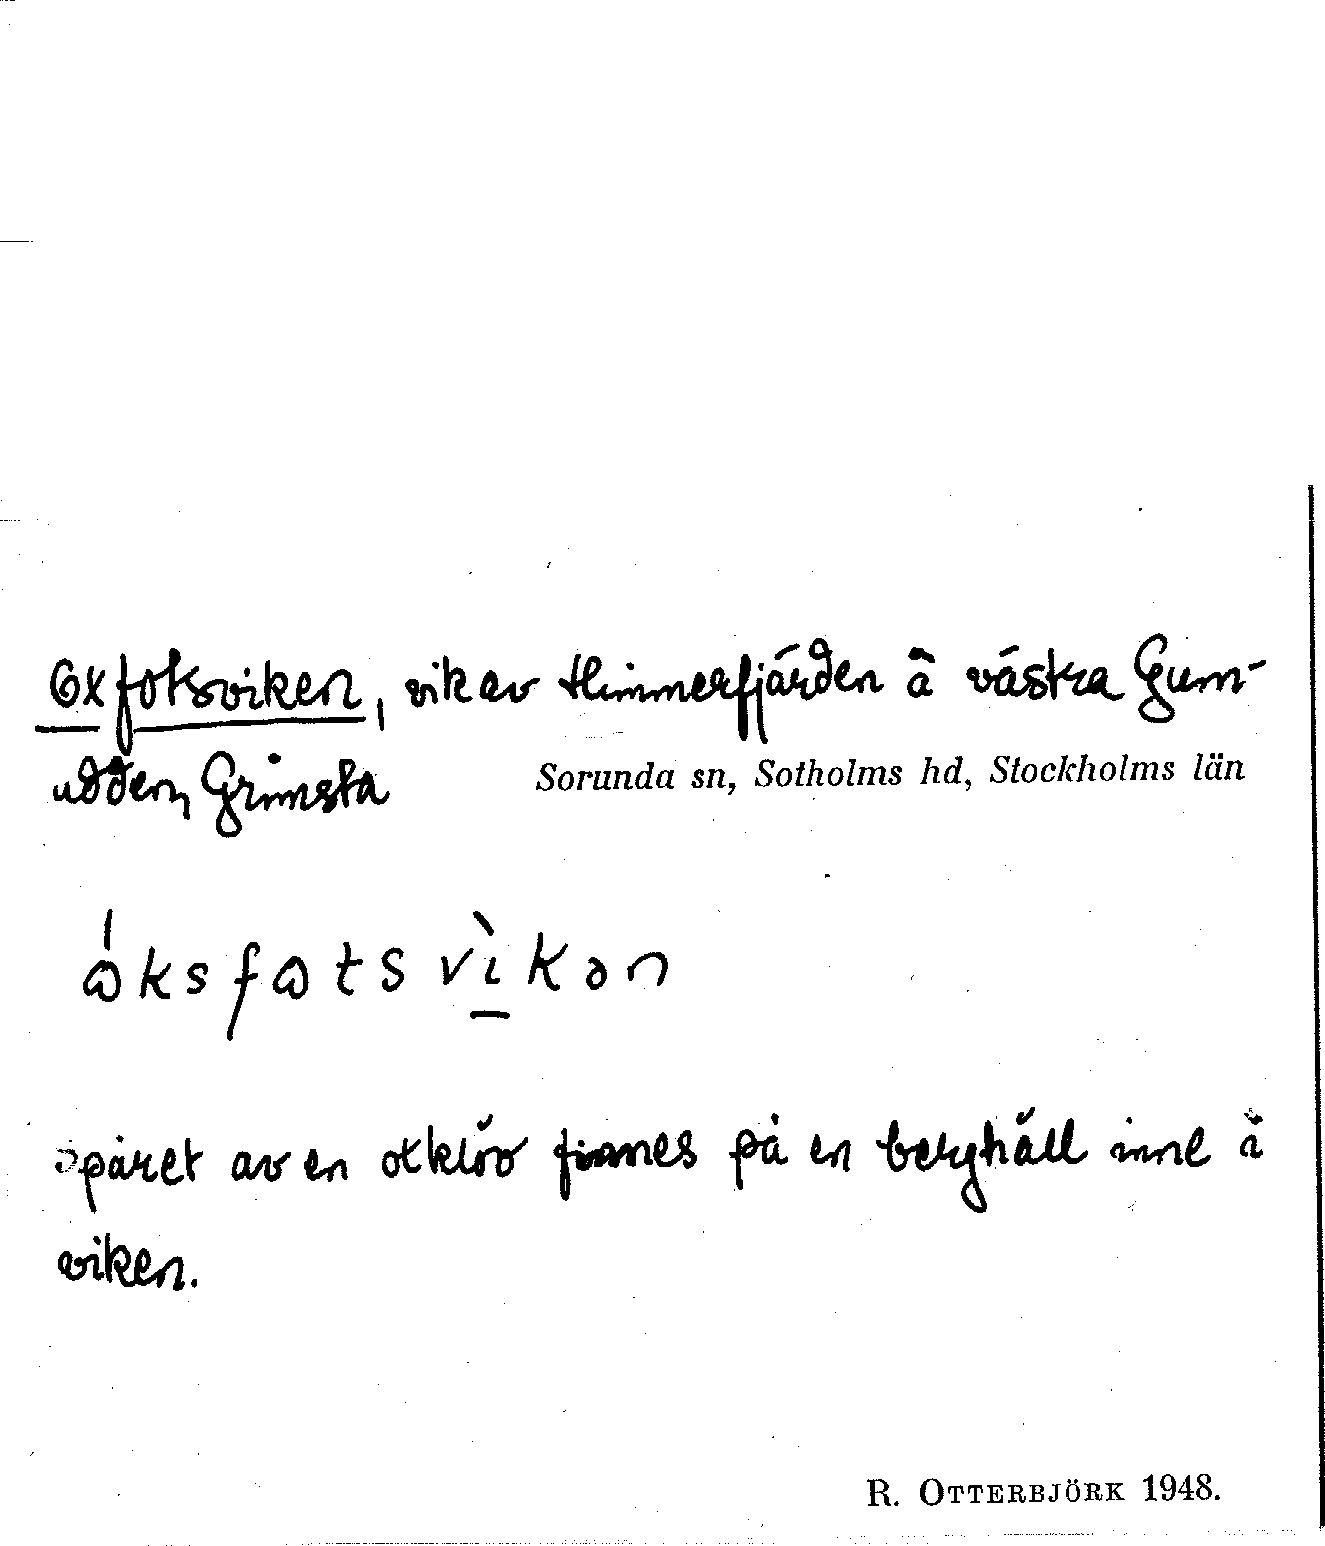 Oxfotsviken, vik av Himmerfjärden å västra Gum-
udden, Grimsta
Sorunda sn, Sotholms hd, Stockholms län
spåret av en oxklöv finnes på en berghäll inne å
viken.
R. OTTERBJÖRK 1948.